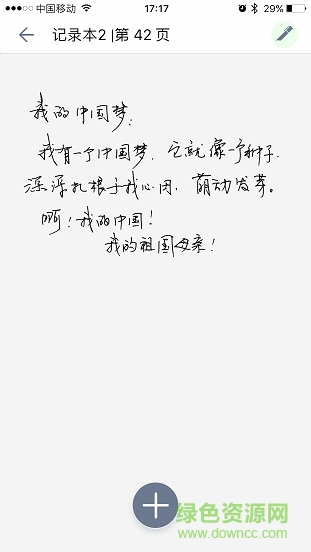 中国移动 17:17 29%
记录本2 |第 42 页
我的中国梦.
我有一个中国梦. 它就像一个种子.
深深扎根于我心内, 萌动发芽。
啊!我的中国!
我的祖国母亲!
绿色资源网
www.downcc.com